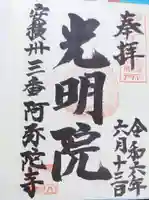 奉拝
令和六年
六月十二日
光明院
安積卅三番 阿弥陀寺